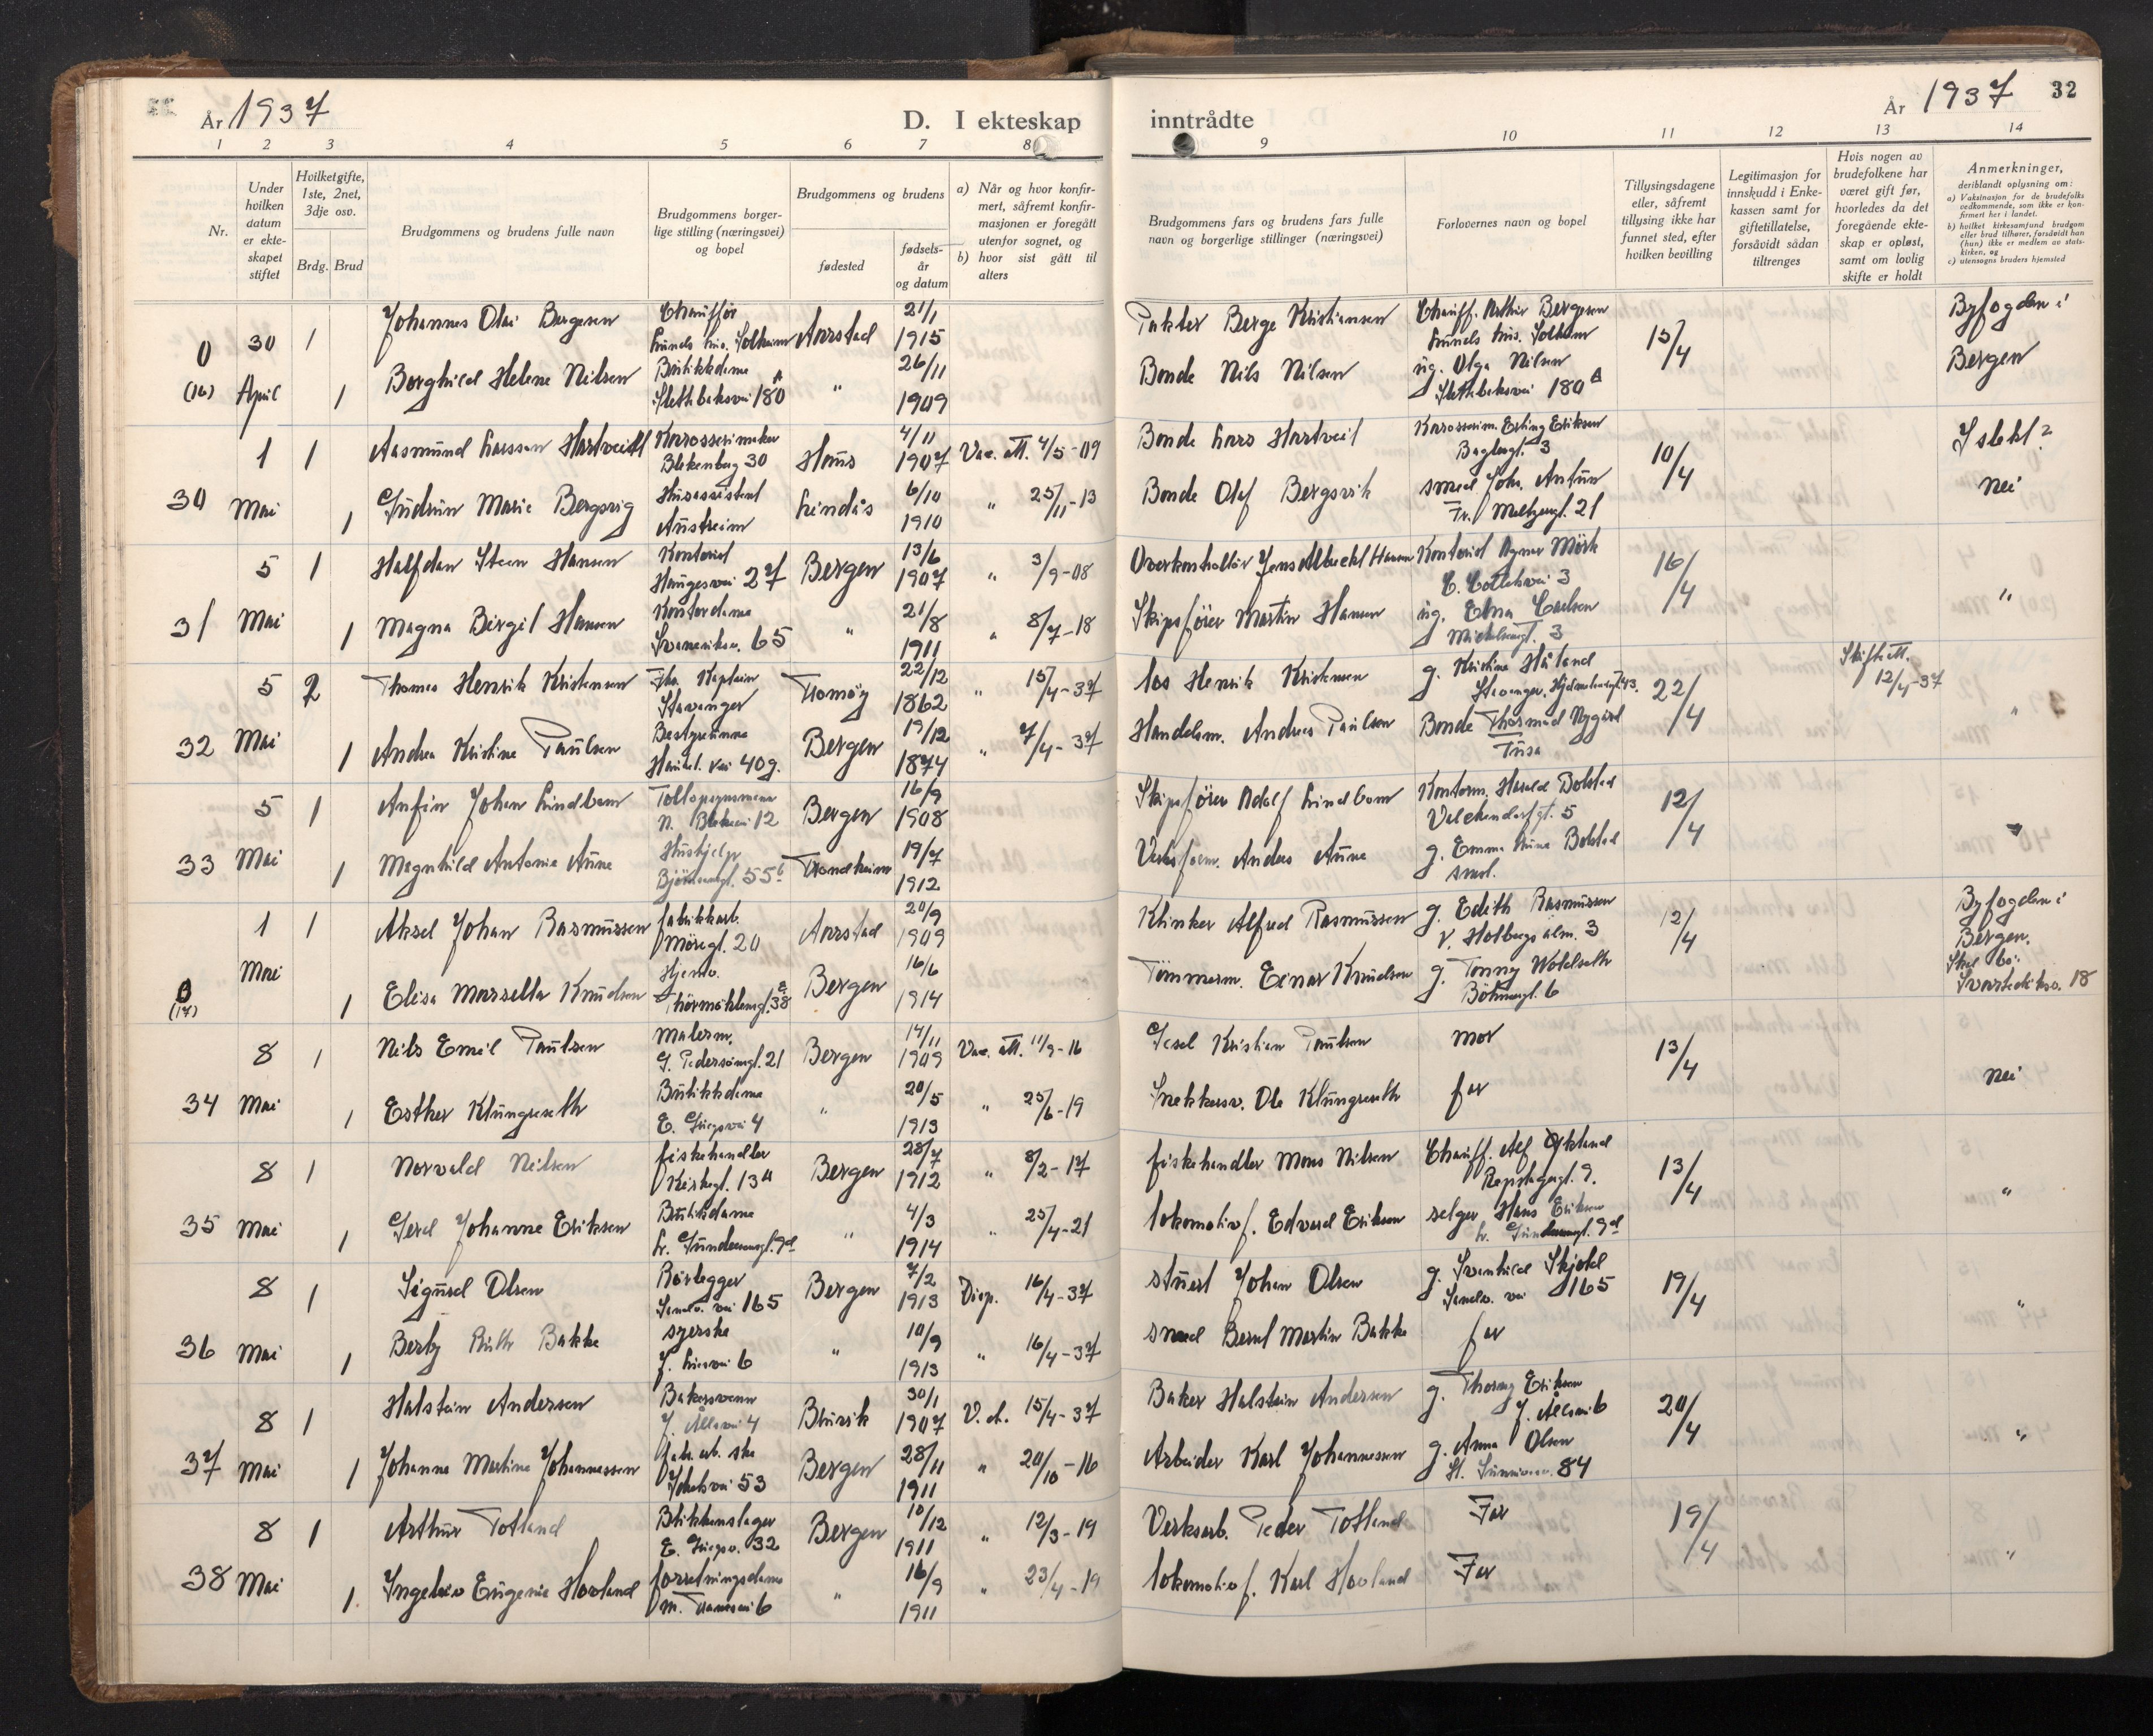 År 1937
D. I ekteskap
inntrådte
År 1937
32
1 2 3 4 5 6 7 8 9 10 11 12 13 14
Nr.
Under hvilken datum er ekteskapet stiftet
Hvilketgifte, 1ste, 2net, 3dje osv.
Brdg. Brud
Brudgommens og brudens fulle navn
Brudgommens borgerlige stilling (næringsvei) og bopel
Brudgommens og brudens
fødested
fødselsår og datum
a) Når og hvor konfirmert, såfremt konfirmasjonen er foregått utenfor sognet, og
b) hvor sist gått til alters
Brudgommens fars og brudens fars fulle navn og borgerlige stillinger (næringsvei)
Forlovernes navn og bopel
Tillysingsdagene eller, såfremt tillysing ikke har funnet sted, efter hvilken bevilling
Legitimasjon for innskudd i Enkekassen samt for giftetillatelse, forsåvidt sådan tiltrenges
Hvis nogen av brudefolkene har været gift før, hvorledes da det foregående ekteskap er opløst, samt om lovlig skifte er holdt
Anmerkninger, deriblandt oplysning om:
a) Vaksinasjon for de brudefolks vedkommende, som ikke er konfirmert her i landet.
b) hvilket kirkesamfund brudgom eller brud tilhører, forsåvidt han (hun) ikke er medlem av statskirken, og
c) utensogns bruders hjemsted
0 30 1 Johannes Olai Bergesen Chauffør Solheim Aarstad 21/1 1915 Berge Kristiansen Chauff. Arthur Bergesen 15/4 Byfogden i
(16) April 1 Borghild Helene Nilsen Butikkdame Slettebaksvei 180 A " 26/11 1909 Bonde Nils Nilsen ug. Olga Nilsen Slettebaksvei 180 A Bergen
1 1 Aasmund Larssen Hartveit Karosserimaker Blekenberg 30 Haus 4/11 1907 Vac. att. 4/5-09 Bonde Lars Hartveit Karosserim. Erling Eriksen 3 10/4
30 Mai 1 Gudrun Marie Bergsvig Husassistent Austreim Lindås 6/10 1910 " 25/11-13 Bonde Olaf Bergsvik smed Johs. Antun Fr. Meltzersgt. 21 nei
5 1 Halfdan Steen Hansen Kontorist Haugesvei 27 Bergen 13/6 1907 " 3/9-08 Overkontrollør Jens Albrecht Hansen Kontorist Agnar Mörk 3 16/4
31 Mai 1 Magna Birgit Hansen Kontordame 65 " 21/8 1911 " 8/7-18 Skipsfører Martin Hansen ug. Edna Carlsen 3 "
5 2 Thomas Henrik Kristensen Fhv. Kaptein Stavanger Tromöy 22/12 1862 " 15/4-37 Los Henrik Kristensen g. Kristine Håland Stavanger 22/4 Skifteatt. 12/4-37
32 Mai 1 Andrea Kristine Paulsen Bestyrerinne 40 g. Bergen 19/12 1874 " 7/4-37 Handelsm. Andreas Paulsen Bonde Thormod Nygård Fusa "
5 1 Anfin Johan Lindbom N. Blekevei 12 Bergen 16/9 1908 Skipsfører Adolf Lindbom Kontorm. Harald Bolstad Valckendorfsgt. 5 12/4
33 Mai 1 Magnhild Antonie Aune Hushjelp 55 b. Trondheim 19/7 1912 Anders Aune g. Emma Bolstad smst.
1 1 Aksel Johan Rasmussen fabrikkarb. Møregt. 20 Aarstad 20/9 1909 Klinker Alfred Rasmussen g. Edith Rasmussen V. Holbergs alm. 3 12/4 Byfogden i Bergen.
0 (17) Mai 1 Elisa Marsella Knudsen Hjemv. Thormøhlensgt. 38 a Bergen 16/6 1914 Tømmerm. Einar Knudsen g. Tonny 6 Skal bo: Svartediksv. 18
8 1 Nils Emil Paulsen Malerm. G. Pedersönsgt. 21 Bergen 14/11 1909 Vac. att. 11/9-16 Kristian Paulsen mor 13/4
34 Mai 1 Esther Klungreseth Butikkdame E. Griegsvei 4 " 20/5 1913 " 25/6-19 Snekkersv. Ole Klungreseth far nei
8 1 Norvald Nilsen fiskehandler Kirkegt. 13 a Bergen 28/7 1912 " 8/2-17 fiskehandler Mons Nilsen Chauff. Alf Økland 9. 13/4
35 Mai 1 Gerd Johanne Eriksen Butikkdame L. Gundersensgt. 9 d " 4/3 1914 " 25/4-21 lokomotivf. Edvard Eriksen selger Hans Eriksen L. Gundersensgt. 9 d "
8 1 Sigurd Olsen Rørlegger Sandv. vei 165 Bergen 7/2 1913 Disp. 16/4-37 stuert Johan Olsen g. Svanhild Skjold Sandv. vei 165 19/4
36 Mai 1 Berly Ruth Bakke syerske J. Liesvei 6 " 10/9 1913 " 16/4-37 smed Bernt Martin Bakke far "
8 1 Halstein Andersen Bakersvenn 4 30/1 1907 V. a. 15/4-37 Baker Halstein Andersen g. Thoray Eriksen 6 20/4
37 Mai 1 Johanna Martine Johannessen fabr. arb. ske 53 Bergen 28/11 1911 " 20/10-16 Arbeider Karl Johannessen g. Anna Olsen 84 "
8 1 Arthur Totland Blikkenslager E. Griegsv. 32 Bergen 10/12 1911 " 12/3-19 Verksarb. Peder Totland Far 19/4
38 Mai 1. Ingebor Eugenie Hovland forretningsdame 6 " 16/9 1911 " 23/4-19 lokomotivf. Karl Hovland Far "